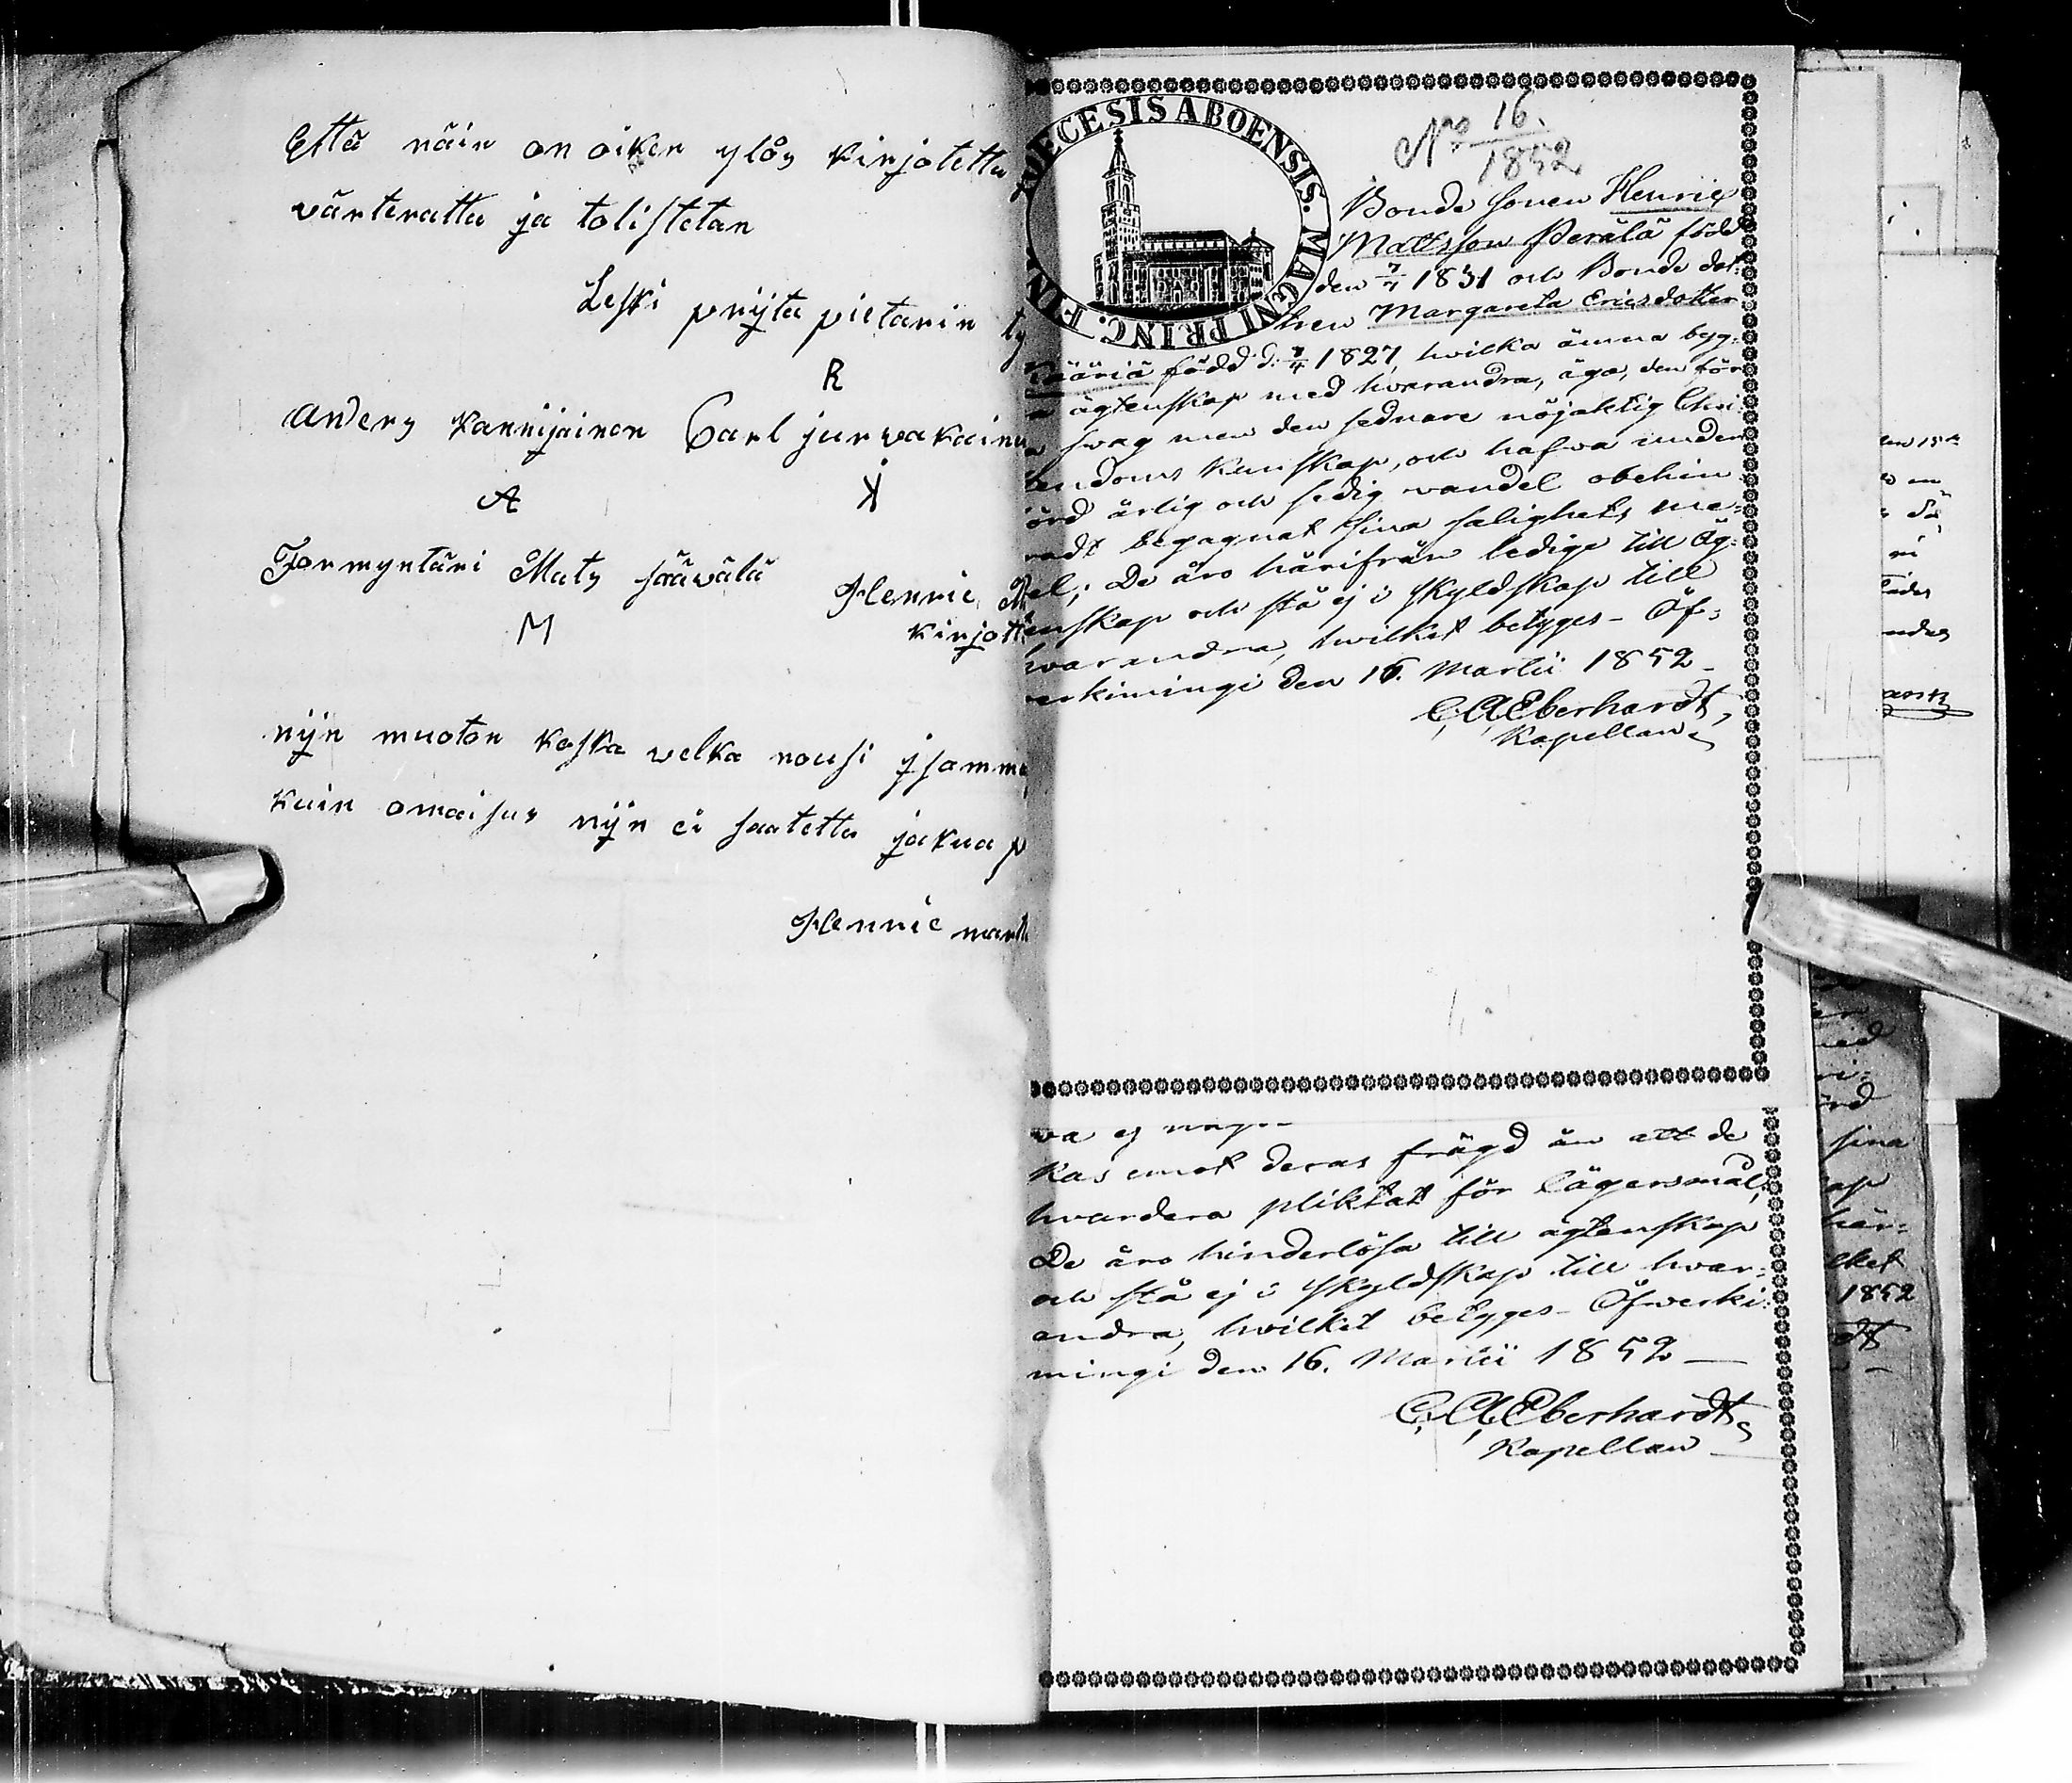 Että näin on oiken ylös kirjotettu
värterattu ja tolistetan
Leski prijta pietarin ty
R
Anders Kannijainen Carl jurvakainen
A
Formyntäri Mats säävälä Henric
M kirjotti
nijn muoton koska velka nousi jsomma
kuin omaisus nijn ei saatettu jakua p
Henric mart
DIOECESIS ABOENSIS. MAGNI PRINC. FINL.
No 16.
1852
Bonde sonen Henric
Mattsson Perälä född
den 7/4 1831 och Bonde dot=
tren Margareta Ericsdotter
Kääriä född d. 7/4 1827, hvilka ämna byg=
ägtenskap med hvarandra, äga, den för
svag men den sednare nöjaktig Chri
tendoms kunskap, och hafva under
örd ärlig och sedig vandel obehin
radt begagnat sina salighets me=
el; De äro härifrån ledige till äg=
enskap och stå ej i skyldskap till
varandra, hvilket betyges - Öf=
erkimingi den 16. Martii 1852 -
C. A. Eberhardt,
Kapellan
va ej
kas emot deras frägd än att de
hvardera pliktat för lägersmål;
De äro hinderlösa till ägtenskap
och stå ej i skyldskap till hvar=
andra, hvilket betyges - Öfverki=
mingi den 16. Martii 1852 —
C. A. Eberhardt
Kapellan
sina
här=
lket
1852
dt